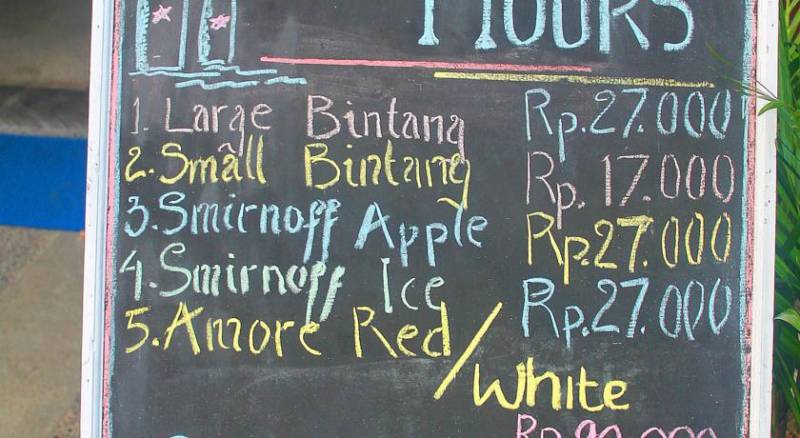 HOURS
1. Large Bintang Rp.27.000
2. Small Bintang Rp. 17.000
3. Smirnoff Apple Rp.27.000
4. Smirnoff Ice Rp.27.000
5. Amore Red/White
Rp.90.000